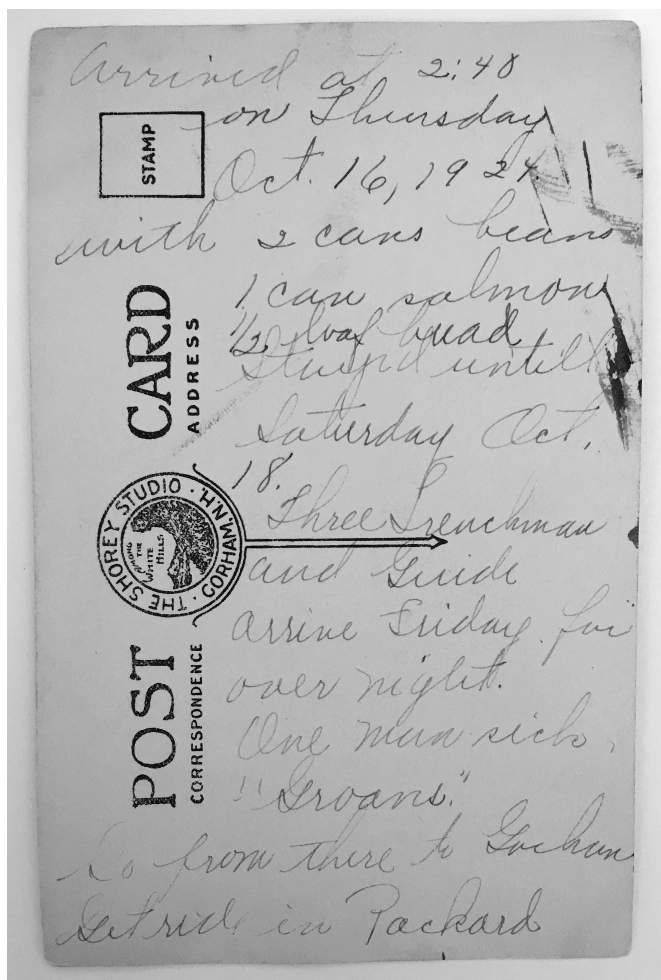 Arrived at 2:40
on Thursday
Oct. 16, 1924
with 2 cans beans
1 can salmon
1/2 loaf bread
Stayed until
Saturday Oct.
18.
Three Frenchman
and Guide
arrive Friday for
over night.
One man sick.
"Groans."
Go from there to Gorham
Get ride in Packard
STAMP
POST CARD
CORRESPONDENCE
ADDRESS
THE SHOREY STUDIO · GORHAM, N.H. ·
AMONG
THE
WHITE HILLS